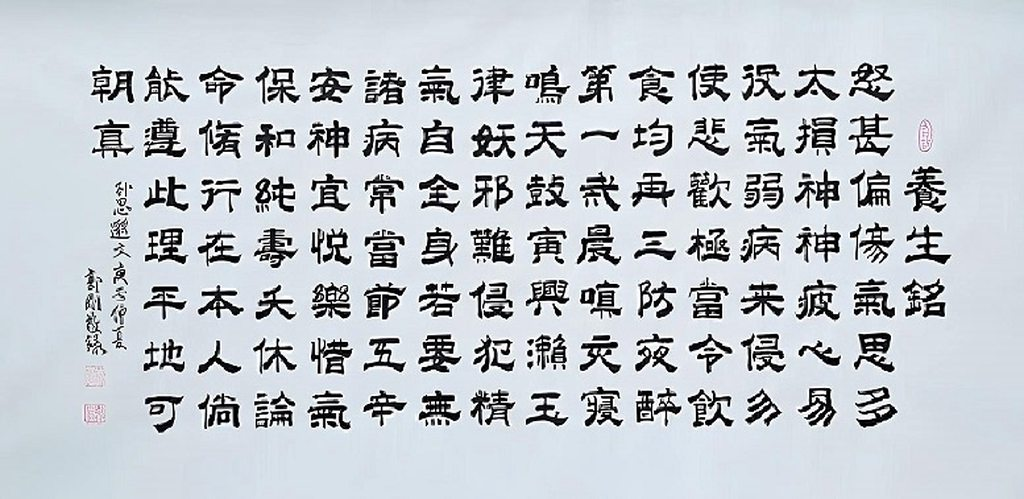 養生銘
怒甚偏傷氣思多
太損神神疲心易
役氣弱病来侵勿
使悲歡極當令飲
食均再三防夜醉
第一戒晨嗔亥寢
鳴天鼓寅興漱玉
律妖邪難侵犯精
氣自全身若要無
諸病常當節五辛
安神宜悦樂惜氣
保和純壽夭休論
命脩行在本人倘
能遵此理平地可
朝真
孫思邈文